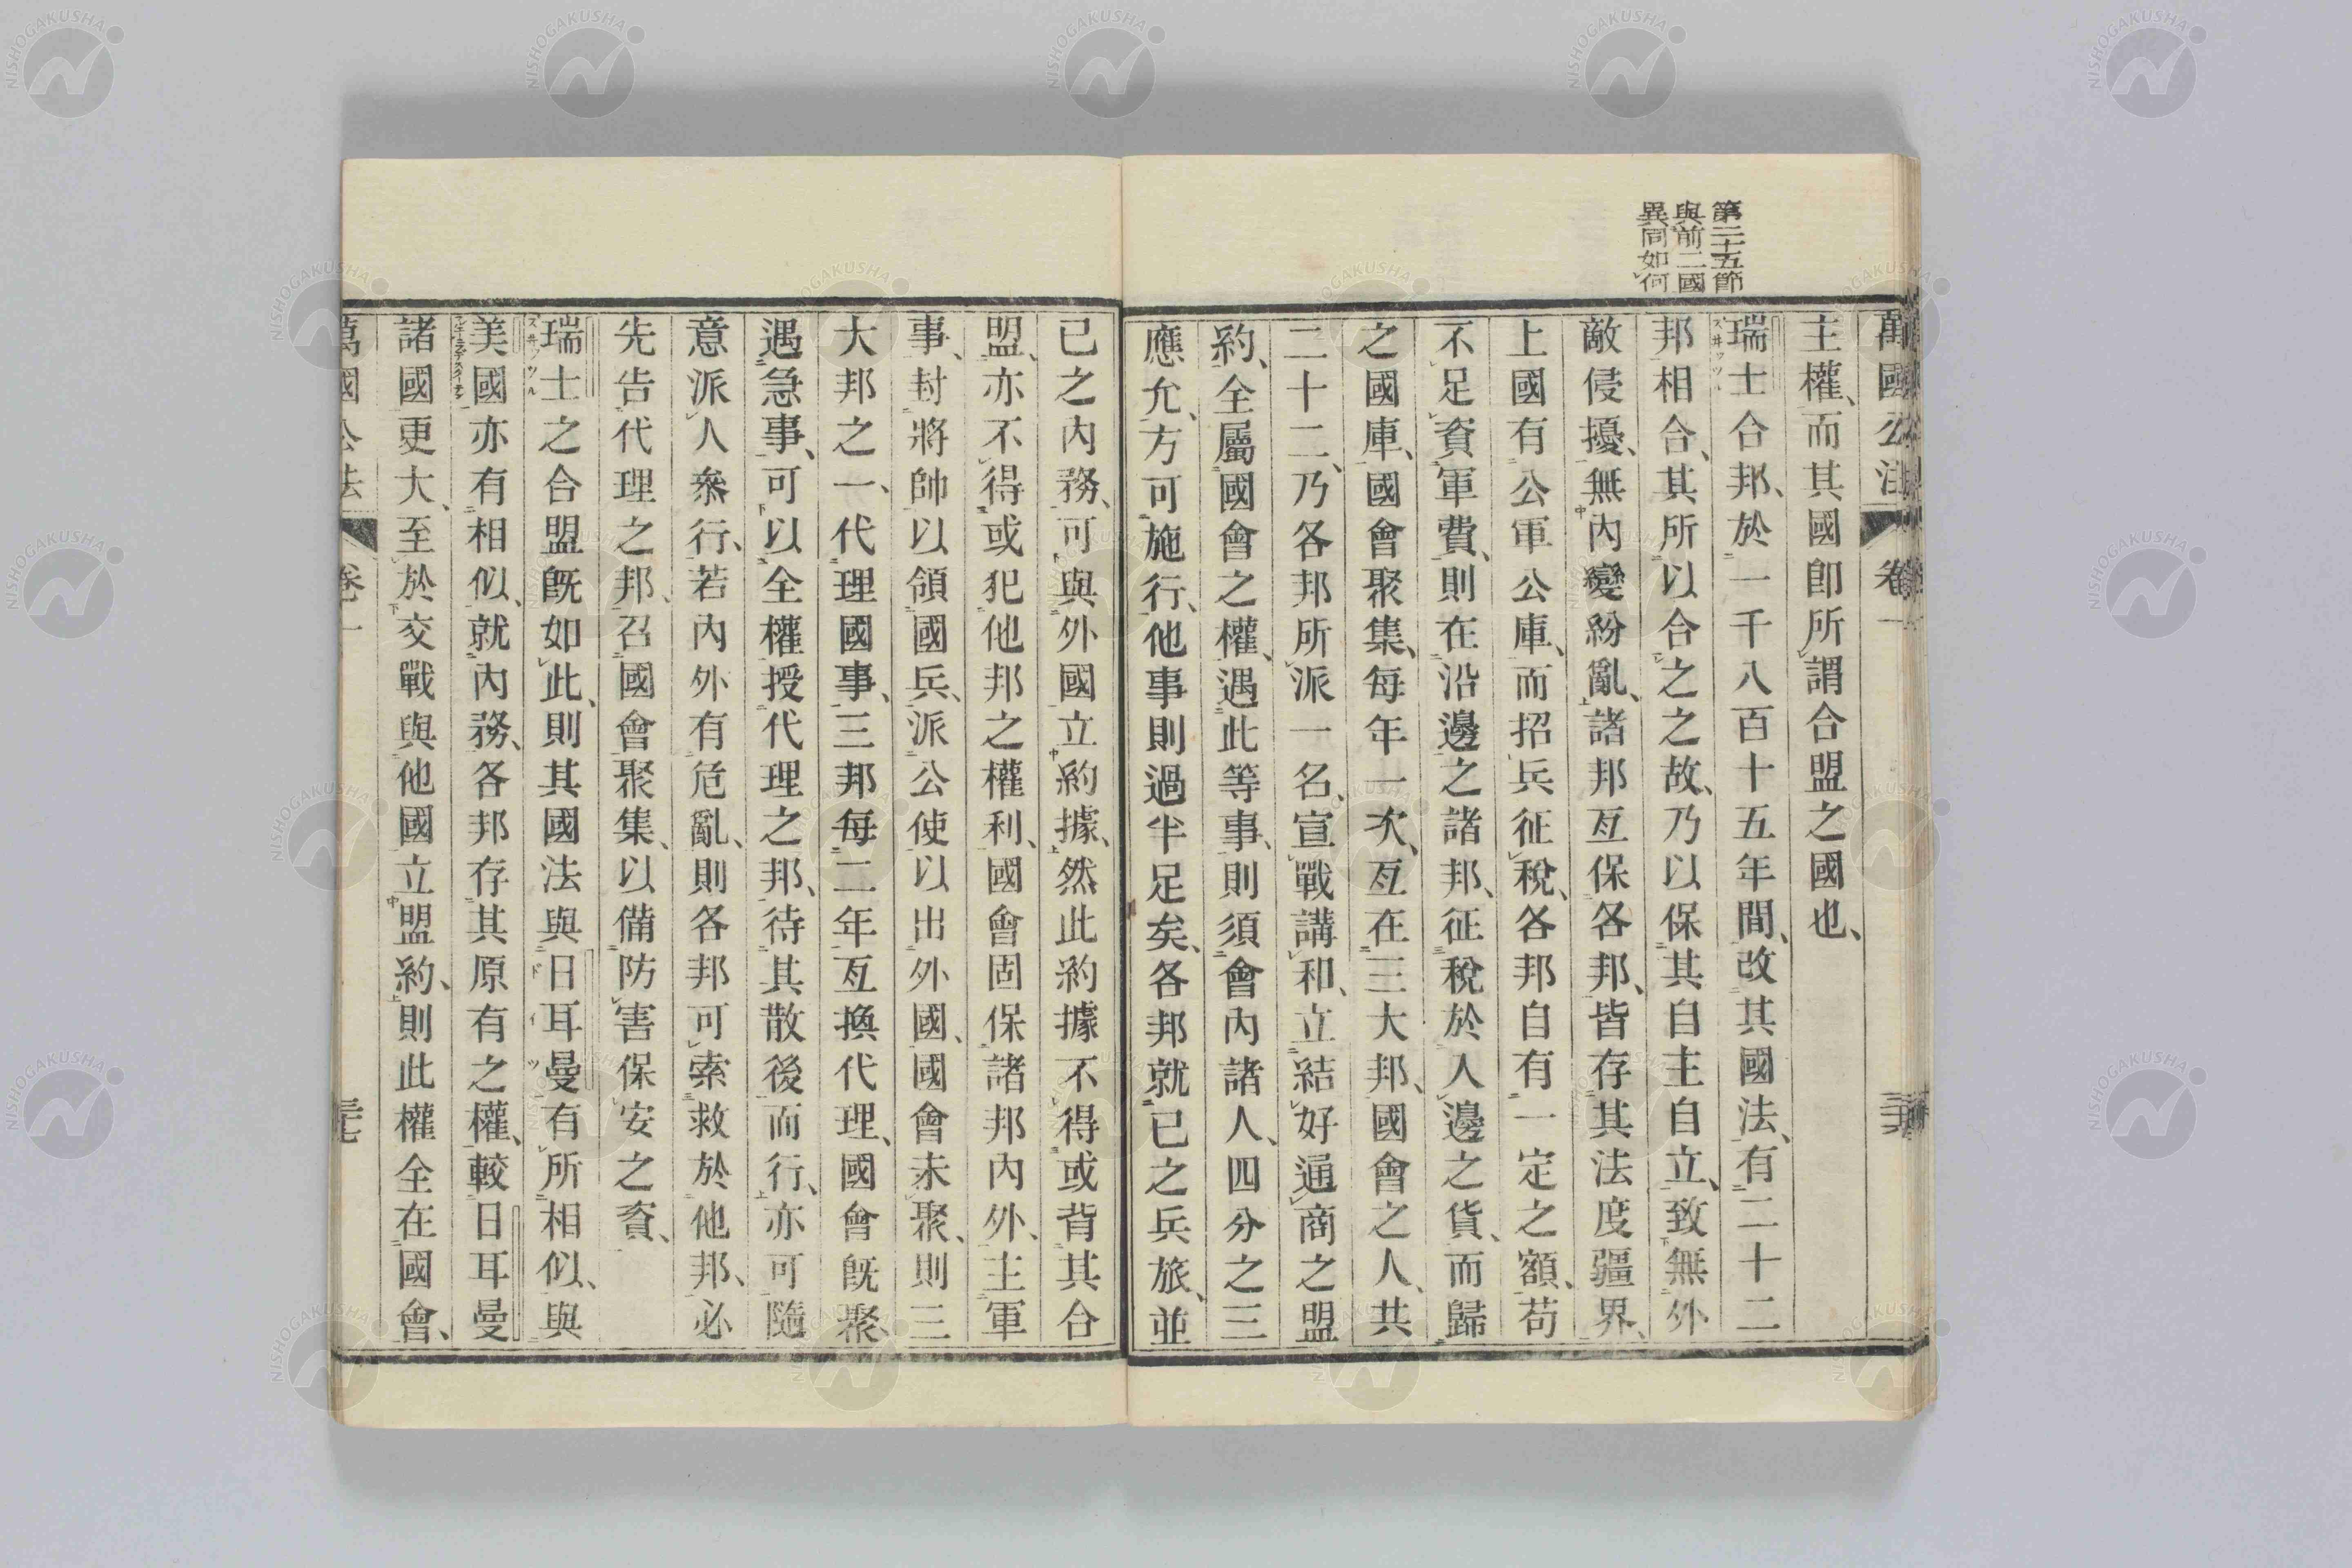 第二十五節
與前二國
異同如何
萬國公法 卷一
主權、而其國卽所謂合盟之國也、
瑞士合邦、於一千八百十五年間、改其國法、有二十二
邦相合、其所以合之之故、乃以保其自主自立、致無外
敵侵擾、無內變紛亂、諸邦互保各邦、皆存其法度疆界、
上國有公軍公庫、而招兵征稅、各邦自有一定之額、苟
不足資軍費、則在沿邊之諸邦、征稅於入邊之貨、而歸
之國庫、國會聚集、每年一次、互在三大邦、國會之人、共
二十二、乃各邦所派一名、宣戰講和、立結好通商之盟
約、全屬國會之權、遇此等事、則須會內諸人、四分之三
應允、方可施行、他事則過半足矣、各邦就已之兵旅、並
已之內務、可與外國立約據、然此約據不得或背其合
盟、亦不得或犯他邦之權利、國會固保諸邦內外、主軍
事、封將帥以領國兵、派公使以出外國、國會未聚、則三
大邦之一、代理國事、三邦每二年互換代理、國會旣聚
遇急事、可以全權授代理之邦、待其散後而行、亦可隨
意派人叅行、若內外有危亂、則各邦可索救於他邦、必
先告代理之邦、召國會聚集、以備防害保安之資、
瑞士之合盟旣如此、則其國法與日耳曼有所相似、與
美國亦有相似、就內務、各邦存其原有之權、較日耳曼
諸國更大、至於交戰與他國立盟約、則此權全在國會、
萬國公法 卷一 三七
NISHOGAKUSHA